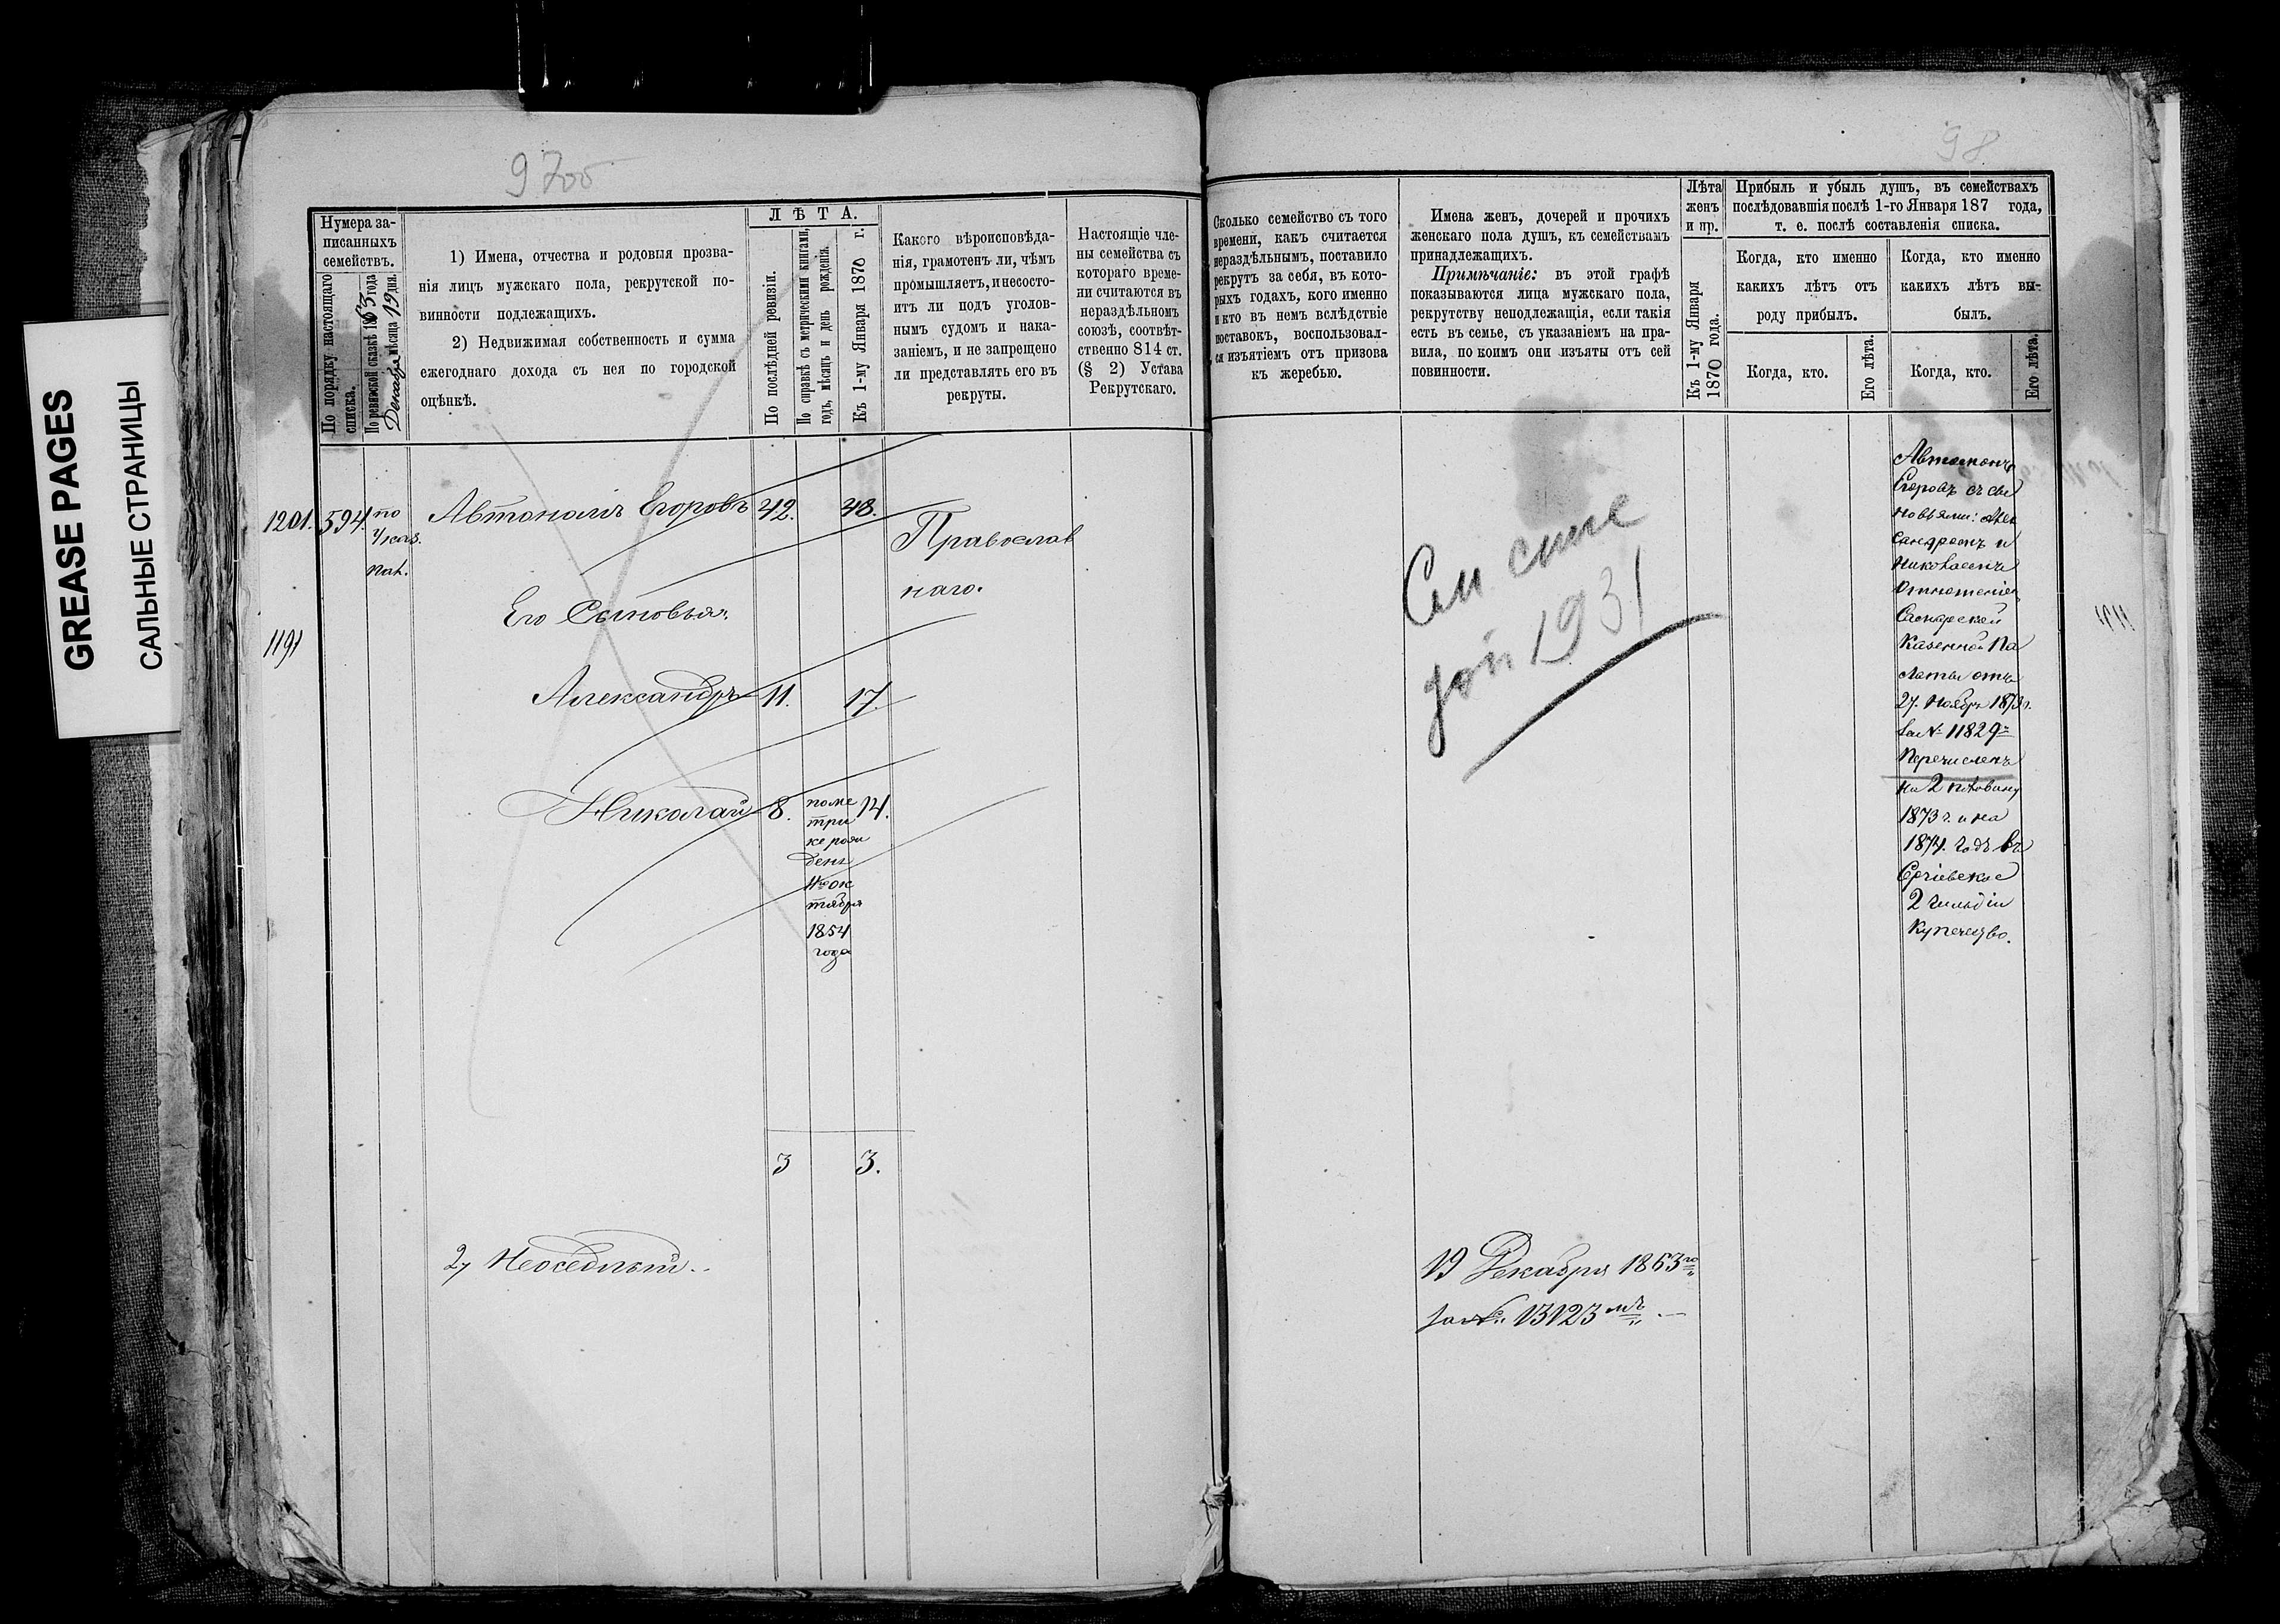 GREASE PAGES
САЛЬНЫЕ СТРАНИЦЫ
97об
Нумера за-
писанныхъ
семействъ.
По порядку настоящаго
списка.
По ревизской сказкѣ 1863 года
Декабря мѣсяца 19 дня.
1) Имена, отчества и родовыя прозва-
нія лицъ мужскаго пола, рекрутской по-
винности подлежащихъ.
2) Недвижимая собственность и сумма
ежегоднаго дохода съ нея по городской
оцѣнкѣ.
ЛѢТА.
По послѣдней ревизіи.
По справкѣ съ метрическими книгами,
годъ, мѣсяцъ и день рожденія.
Къ 1-му Января 1870 г.
Какого вѣроисповѣда-
нія, грамотенъ ли, чѣмъ
промышляетъ, и несосто-
итъ ли подъ уголов-
нымъ судомъ и нака-
заніемъ, и не запрещено
ли представлять его въ
рекруты.
Настоящіе чле-
ны семейства съ
котораго време-
ни считаются въ
нераздѣльномъ
союзѣ, соотвѣт-
ственно 814 ст.
(§ 2) Устава
Рекрутскаго.
1201. 594. по
Указ.
пал.
Автономъ Егоровъ 42. 48.
Православ
наго.
Его Сыновья:
1191
Александръ 11. 17.
Николай 8. 14.
поме
три
ке рож
денъ
11го ок
тября
1854
года
3 3.
2, Неоседлый..
98
Сколько семейство съ того
времени, какъ считается
нераздѣльнымъ, поставило
рекрутъ за себя, въ кото-
рыхъ годахъ, кого именно
и кто въ немъ вслѣдствіе
поставокъ, воспользовал-
ся изъятіемъ отъ призова
къ жеребью.
Имена женъ, дочерей и прочихъ
женскаго пола душъ, къ семействамъ
принадлежащихъ.
Примѣчаніе: въ этой графѣ
показываются лица мужскаго пола,
рекрутству неподлежащія, если такія
есть въ семьѣ, съ указаніемъ на пра-
вила, по коимъ они изъяты отъ сей
повинности.
Лѣта
женъ
и пр.
Къ 1-му Января
1870 года.
Прибыль и убыль душъ, въ семействахъ
послѣдовавшія послѣ 1-го Января 187 года,
т. е. послѣ составленія списка.
Когда, кто именно
какихъ лѣтъ отъ
роду прибылъ.
Когда, кто.
Его лѣта.
Когда, кто именно
какихъ лѣтъ вы-
былъ.
Когда, кто.
Его лѣта.
См
1931
Автономъ
Егоровъ съ сы
новьями: Алек
сандромъ и
Николаемъ
Отношеніем
Самарской
Казенной Па
латы отъ
27. Ноября 1873г.
за № 11829м
Перечисленъ
на 2 половину
1873 г. и на
1874. Годъ въ
Сергіевское
2 гильдіи
Купечество.
19 Декабря 1863го
за № 13123мъ